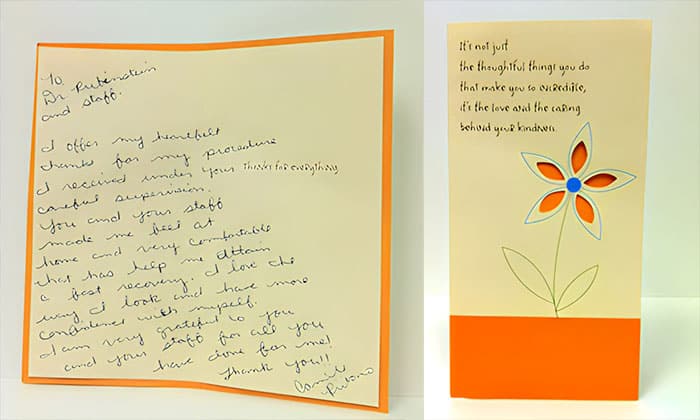 To
Dr. Rubinstein
and staff.
I offer my heartfelt
thanks for my procedure
I received under your
careful supervision.
You and your staff
made me feel at
home and very comfortable
that has help me attain
a fast recovery. I love the
way I look and have more
confidence with myself.
I am very grateful to you
and your staff for all you
have done for me!
Thank you!!
Thanks for everything
It's not just
the thoughtful things you do
that make you so incredible,
it's the love and the caring
behind your kindness.